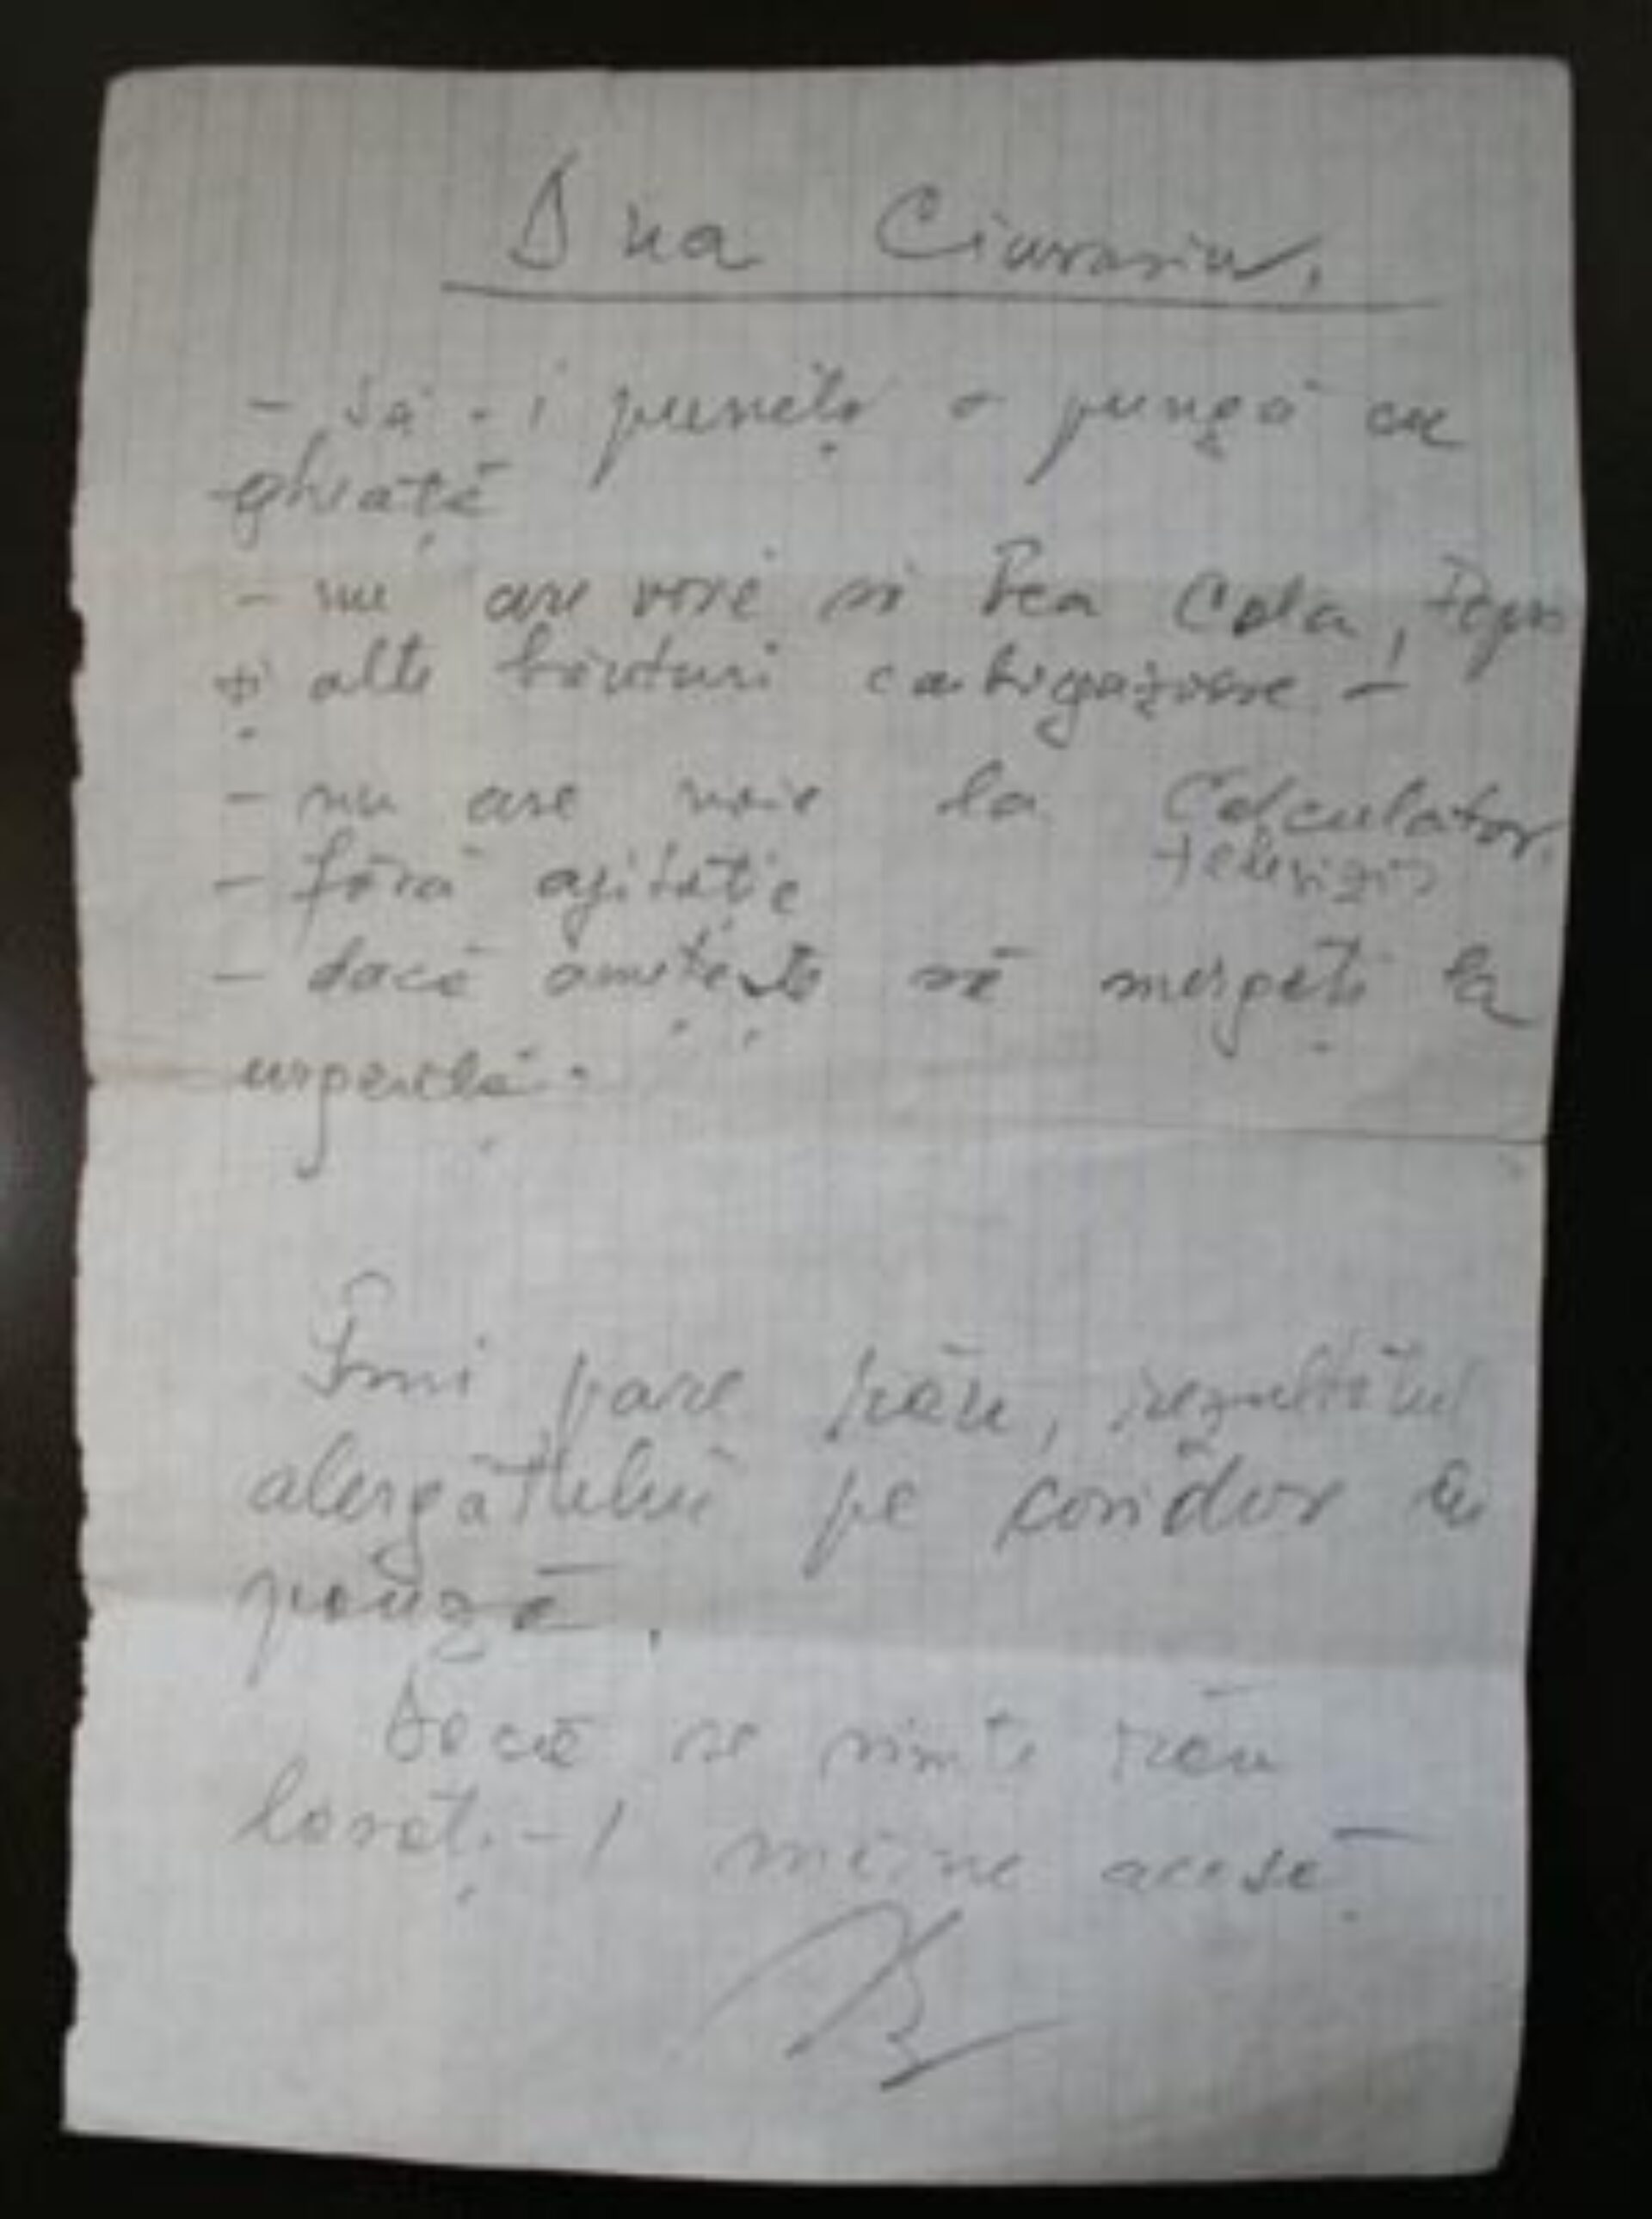 Dna
- Să-i puneți o pungă cu
ghiață
- nu are voie să bea Cola, Pepsi
și alte băuturi carbogazoase -
- nu are voie la Calculator,
televizor
- fără agitație
- dacă amețește să mergeți la
urgență.
Îmi pare rău, rezultatul
alergătului pe coridor în
pauză.
Dacă se simte rău
lăsați-l mâine acasă.